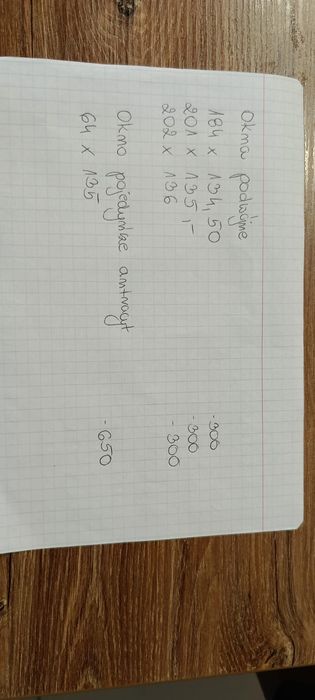 Okna podwójne
184 x 134,50 -300
201 x 135,- -300
202 x 136 -300
Okno pojedyncze antracyt
64 x 135 -650